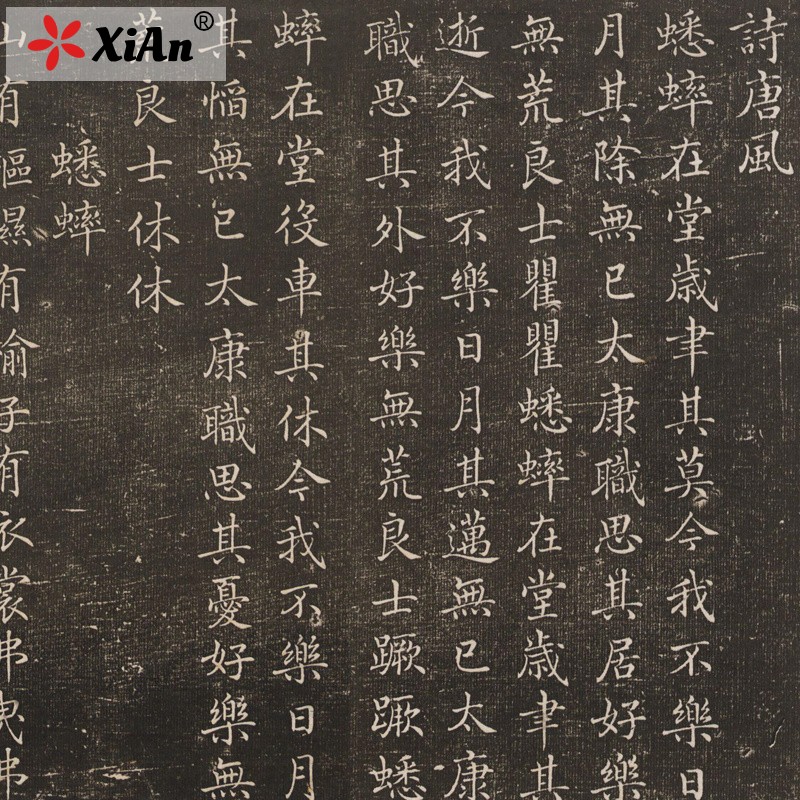 XiAn®
詩唐風
蟋蟀在堂歲聿其莫今我不樂日
月其除無已大康職思其居好樂
無荒良士瞿瞿蟋蟀在堂歲聿其
逝今我不樂日月其邁無已太康
職思其外好樂無荒良士蹶蹶蟋
蟀在堂役車其休今我不樂日月
其慆無已太康職思其憂好樂無
荒良士休休
蟋蟀
山有樞隰有榆子有衣裳弗曳弗